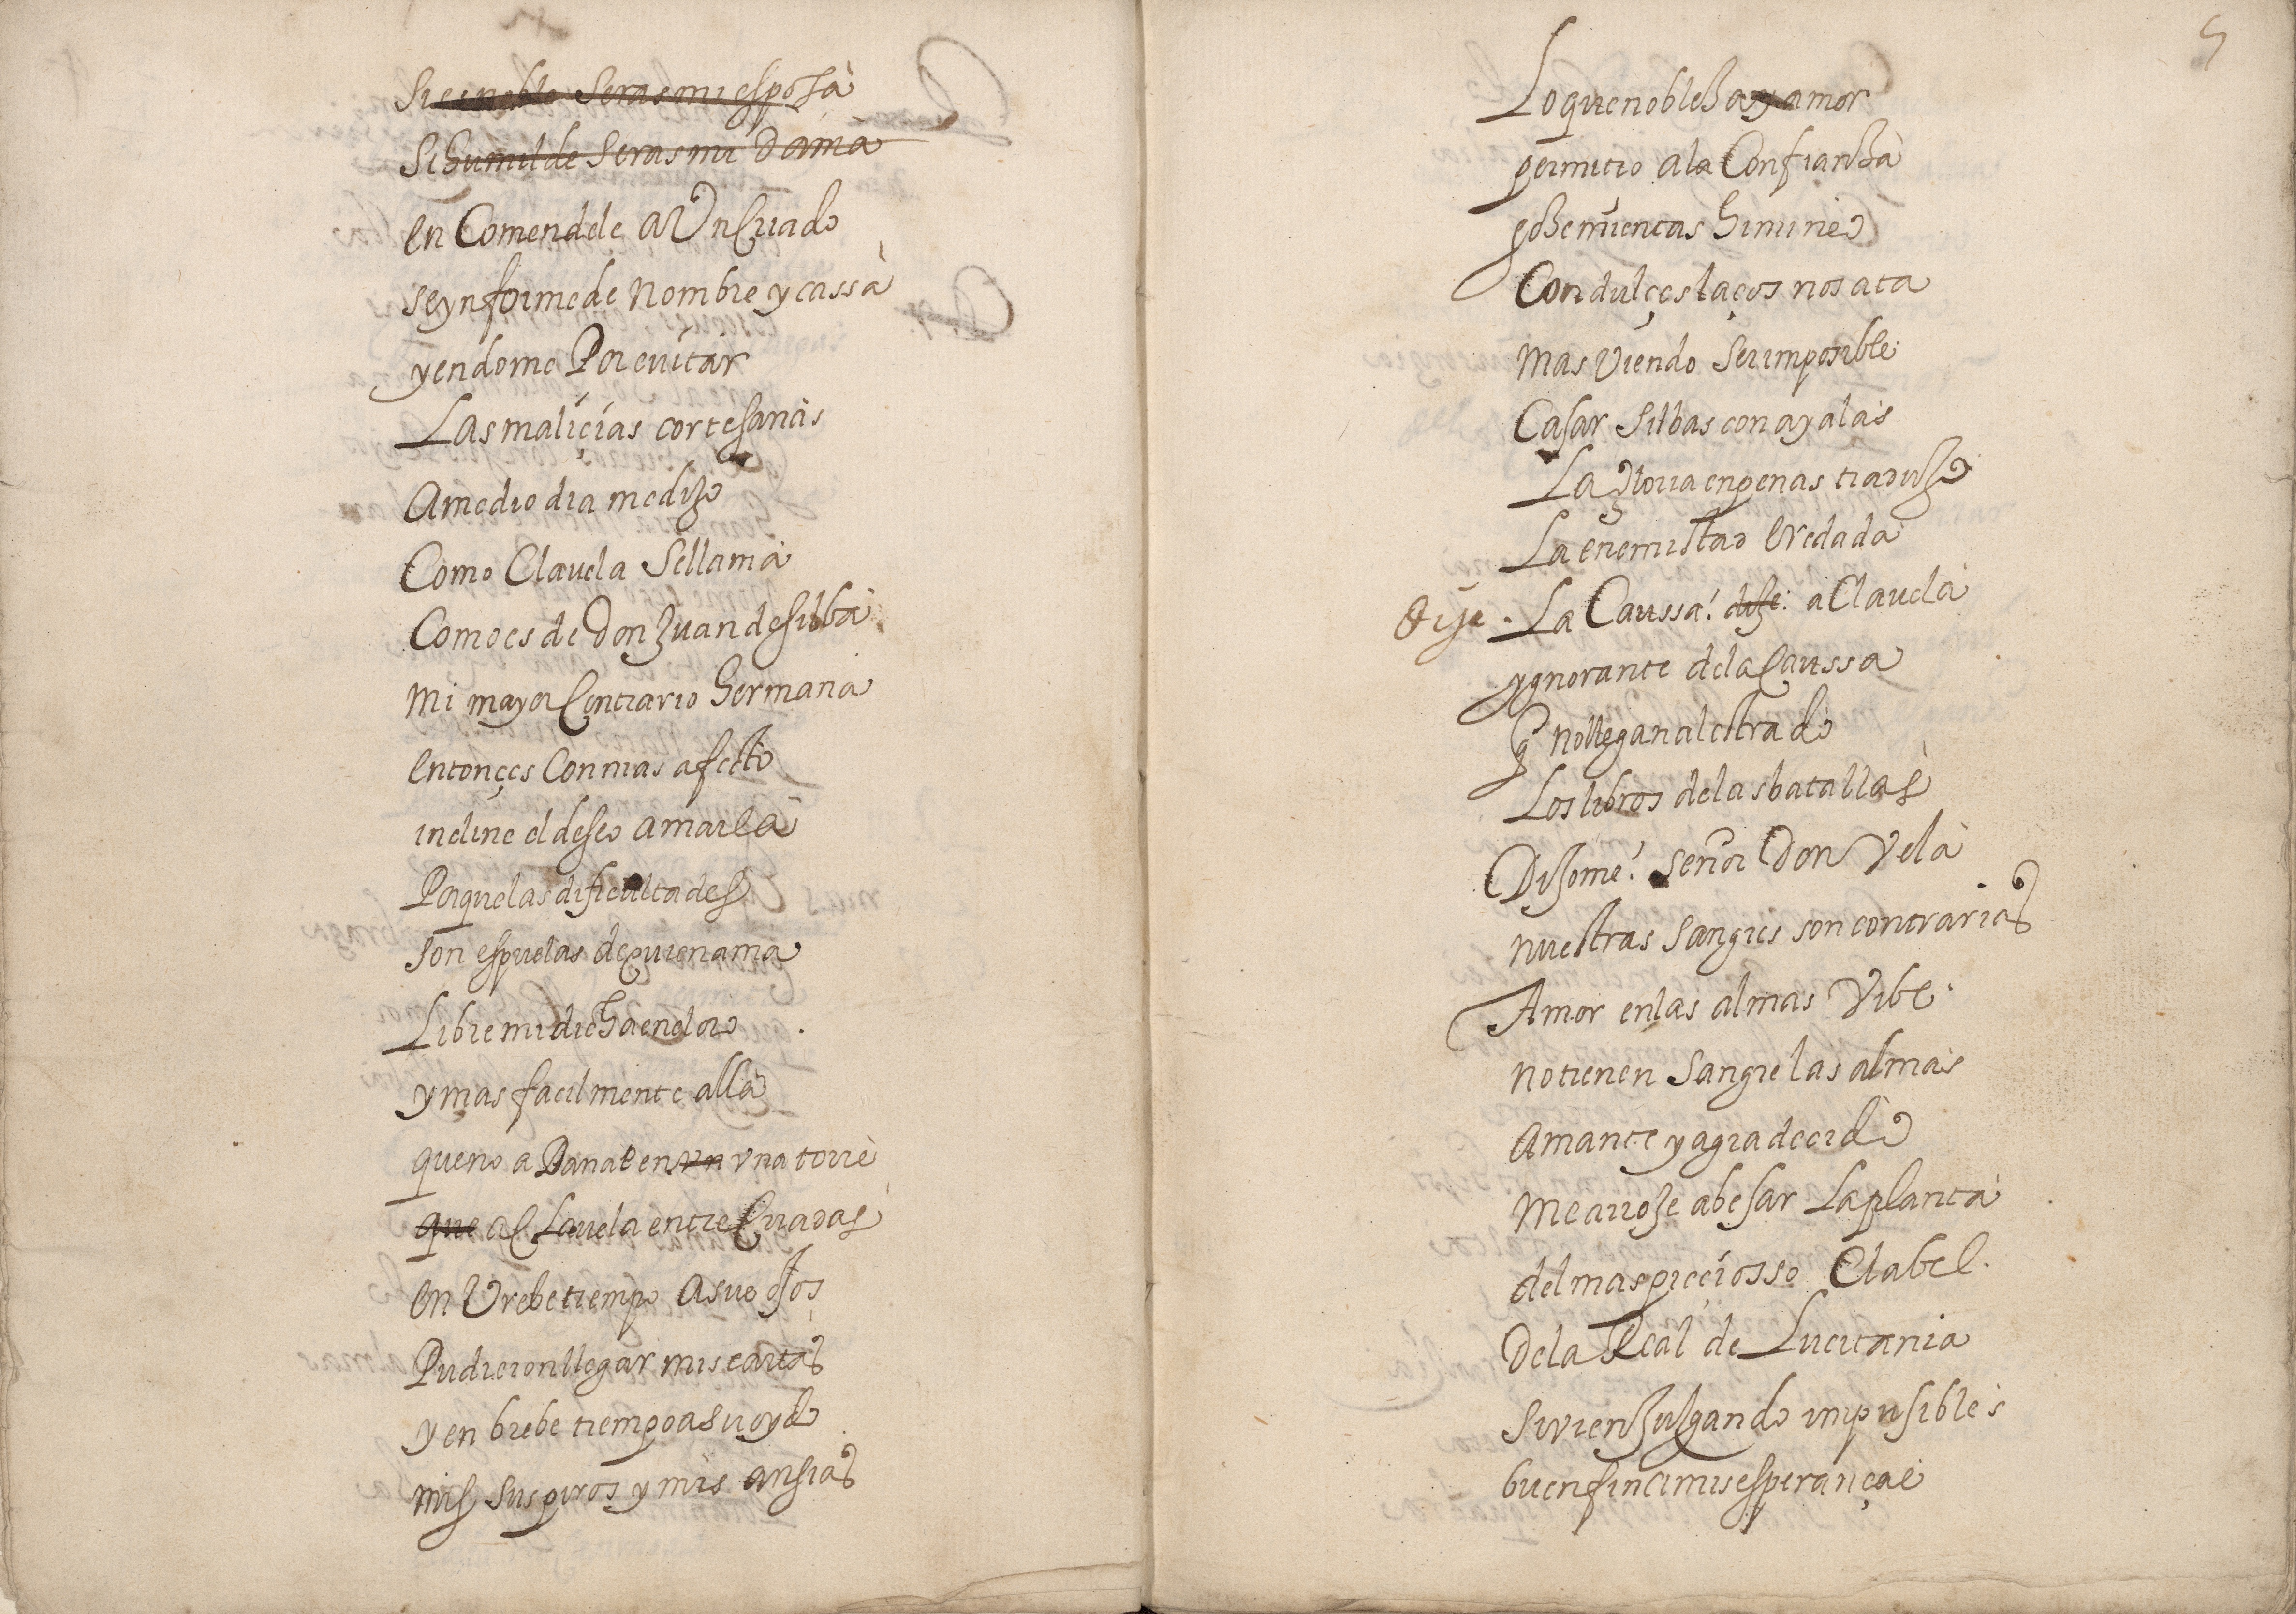 Si es noble Seras mi esposa
Si humilde Seras mi Dama
en Comendele a Un Criado
se ynforme de Nombre y cassa
yendome Por evitar
Las maliçias cortesanas
A medio dia me dixo
Como Clavela Se llama
Como es de Don Juan de Silba
mi mayor Contrario hermana
entonçes Con mas afecto
incline el deseo amarla
Porque las dificultades
son espuelas de quien ama
Libre mi dicha en el oro
y mas facilmente alla
que no a Danae en un vna torre
que a Clavela entre Criadas
en Vrebe tiempo a suo ojos
Pudieron llegar mis cartas
y en brebe tiempo a su oydo
mis suspiros y mis ansias
5
Lo que noble hay amor
permitio a la Confianza
goze mientas himineo
Con dulçes laços nos ata
mas Viendo Ser imposible
Casar Silbas con ayalas
La gloria en penas traduxo
La enemistad eredada
Dije. La Caussa! dixe: a Clavela
ygnorante de la Caussa
q no llegan al estrado
Los libros de las batallas
Dixome! señor Don Vela
nuestras Sangres son contrarias
Amor en las almas Vibe
no tienen Sangre las almas
Amante y agradecido
me arroje a besar La planta
del mas preçiosso Clabel.
De la Real de Lucitania
Si vien Juzgando inpusibles
buen fin a mis esperanças